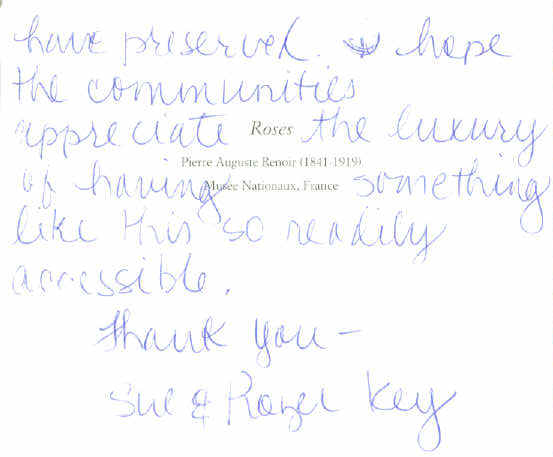 have preserved. hope
the communities
appreciate Roses the luxury
Pierre Auguste Renoir (1841-1919)
of having something
Musée Nationaux, France
like this so readily
accessible.
Thank you –
Sue & Roger Key